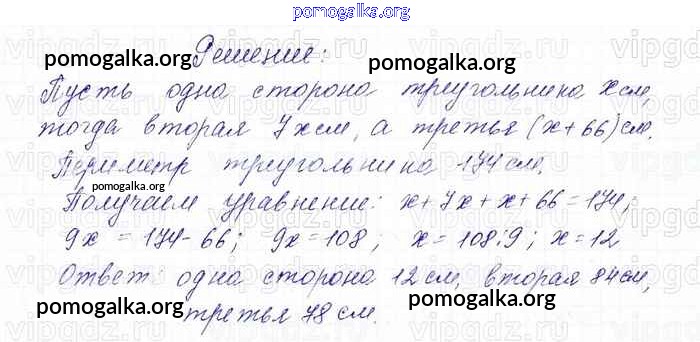 pomogalka.org
Решение:
pomogalka.org pomogalka.org
Пусть одна сторона треугольника x см,
тогда вторая 7x см, а третья (x+66) см.
Периметр треугольника 174 см.
pomogalka.org
Получаем уравнение: x+7x+x+66=174;
9x = 174-66; 9x=108; x=108:9; x=12
Ответ: одна сторона 12 см, вторая 84 см,
pomogalka.org pomogalka.org
третья 78 см.